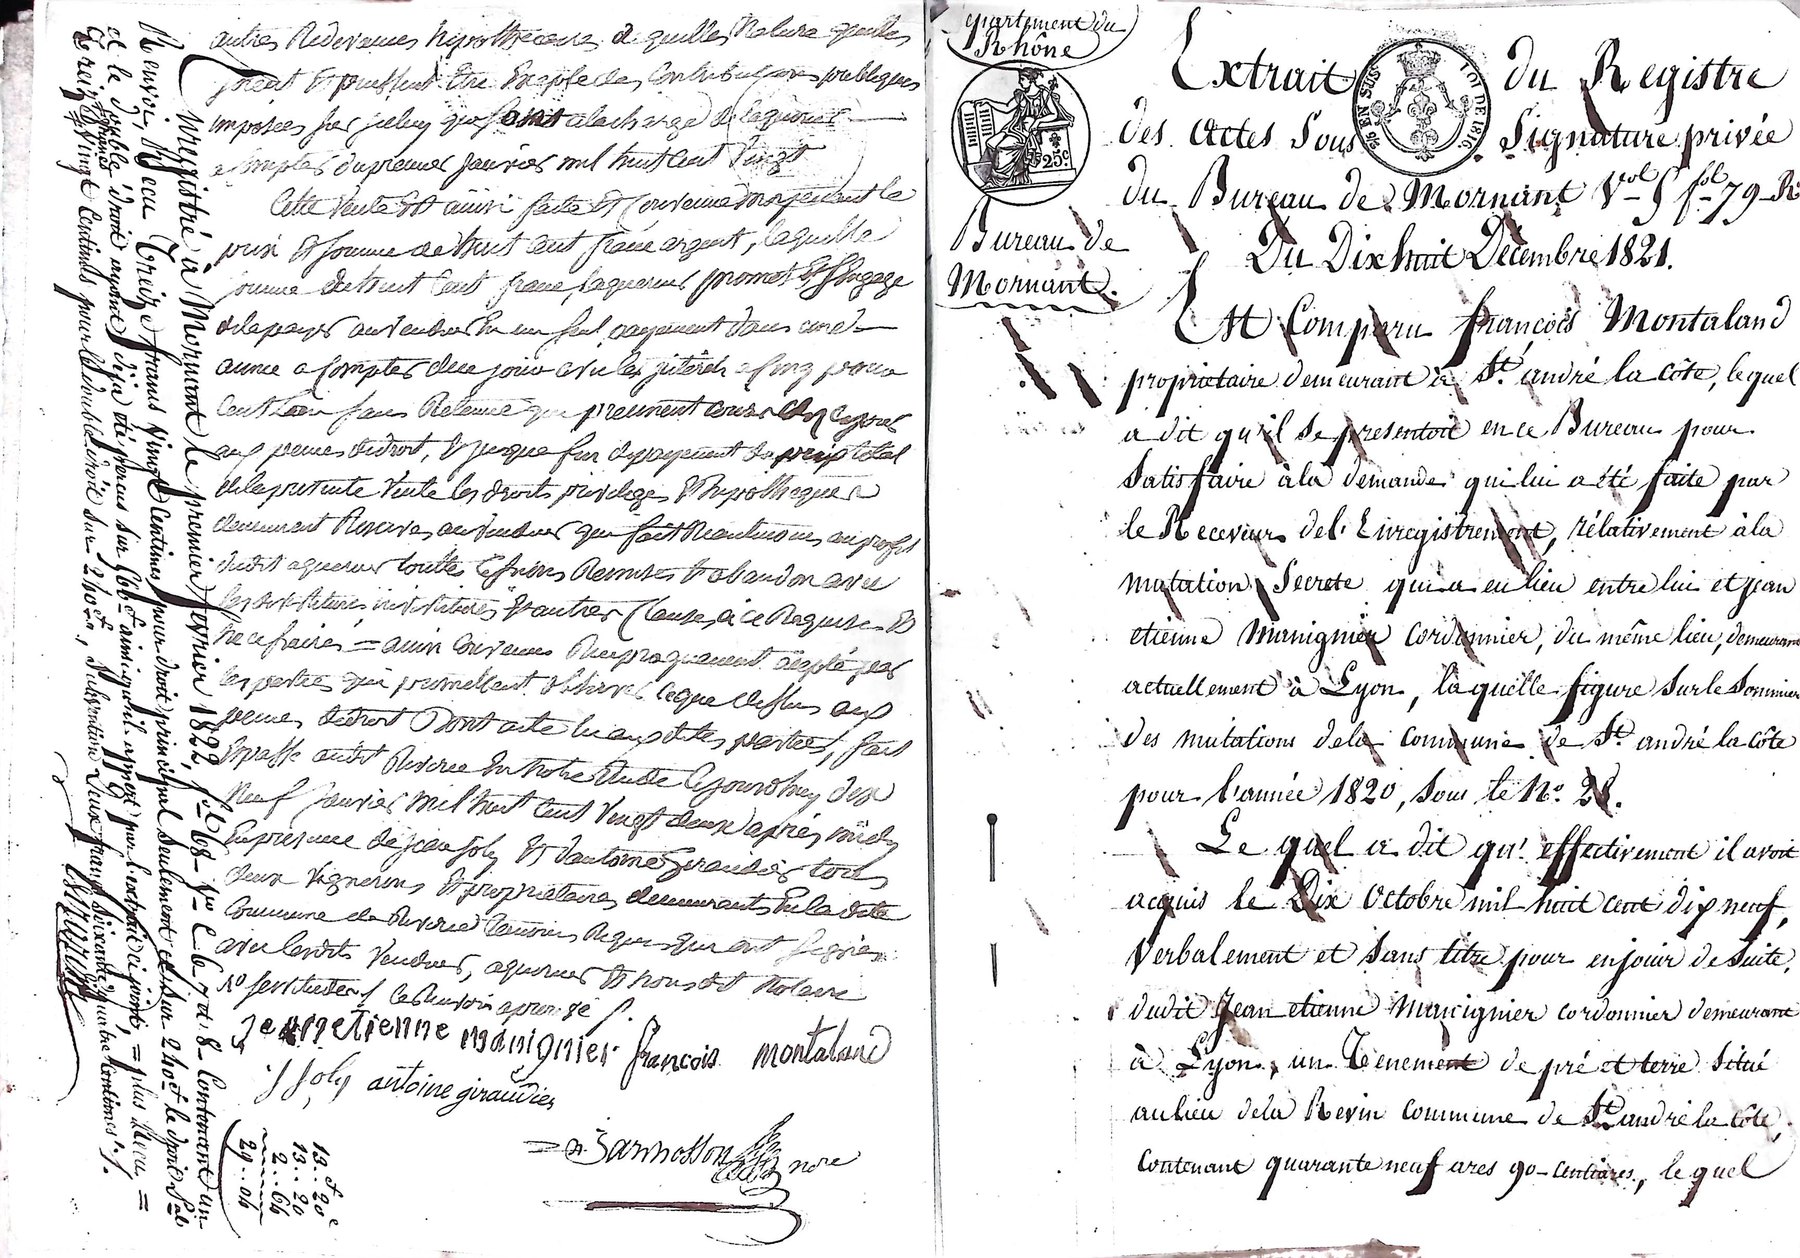 autres Redevances hypothécaires de quelles Nature quelles
soient et puissent être Excepté les Contributions publiques
imposées sur jcelluy qui sont alacharge de laquereur
a Comptes du premier janvier mil huit cent vingt
Cette vente est ainsi faite et Convenue moyenant le
prix et somme de huit cent franc argent, laquelle
somme de huit Cent franc, laquereur promet et s'engage
de la payer au vendeur En un seul payement dans une
année a Comptes de ce jour avec les jntérêts a cinq pour
Cent l'an sans Retenue qui prennent cours dez ce jour
aux peines de droit, et jusque fin de payement du prix total
de la présente vente les droits privilege et hypotheque
demeurent Reservés au vendeur qui fait
dudit aquereur toutte Remises et abandon avec
et autres Clauses à ce Requises et
necessaires = ainsi Convenu Reciproquement accepté par
les parties qui promettent observer ce que dessus aux
peines de droit Dont acte lu aux dites parties, fait
et passé audit Riverie En notre Etude le jourdhuy dix
neuf janvier mil huit cent vingt deux après midy
En presence de jean joly et d'antoine Giraudier tous
deux vignerons et proprietaires demeurants En la dite
Commune de Riverie temoins Requis qui ont signé
avec lesdits vendeur, aquereur et nous dit Notaire
jean etienne manignier francois montaland
J Joly antoine giraudier
Zannosson nore
Enregistré à Mornant le premier février 1822, fol. 68 r° C. 6. 7 et 8 Contenant un
Renvoi, Reçu Treize francs vingt Centimes pour droit principal seulement et sur 240 f le droit
et le double droit ayant déja été perçus sur 660 f ainsi qu'il appert par l'extrait ci joint, = plus Reçu =
Treize francs vingt Centimes pour le double droit sur 240 f, Subvention Deux francs soixante quatre Centimes /.
13 f. 20 c
13 . 20
2 . 64
29 . 04
epartement du
Rhône
25 c
Bureau de
Mornant.
LOI DE 1816
Extrait du Registre
des Actes Sous Signature privée
du Bureau de Mornant Vol 5 fol 79 R°
Du Dix huit Décembre 1821.
Est Comparu françois Montaland
proprietaire demeurant à St. andré la côte, lequel
a dit qu'il se presentoit en ce Bureau pour
Satisfaire à la demande qui lui a été faite par
le Receveur de l'Enregistrement, rélativement à la
mutation Secrete qui a eu lieu entre lui et jean
etienne Manignier cordonnier, du même lieu, demeurant
actuellement à Lyon, la quelle figure sur le Sommier
des mutations de la commune de St. andré la côte
pour l'année 1820, sous le N°. 28.
Le quel a dit qu'effectivement il avoit
acquis le Dix Octobre mil huit cent dix neuf,
Verbalement et Sans titre pour en jouir de Suite,
dudit Jean etienne Manignier cordonnier demeurant
à Lyon, un Tenement de pré et terre Situé
au lieu de la Revin Commune de St. andré la Côte,
Contenant quarante neuf ares 90 centiares, le quel